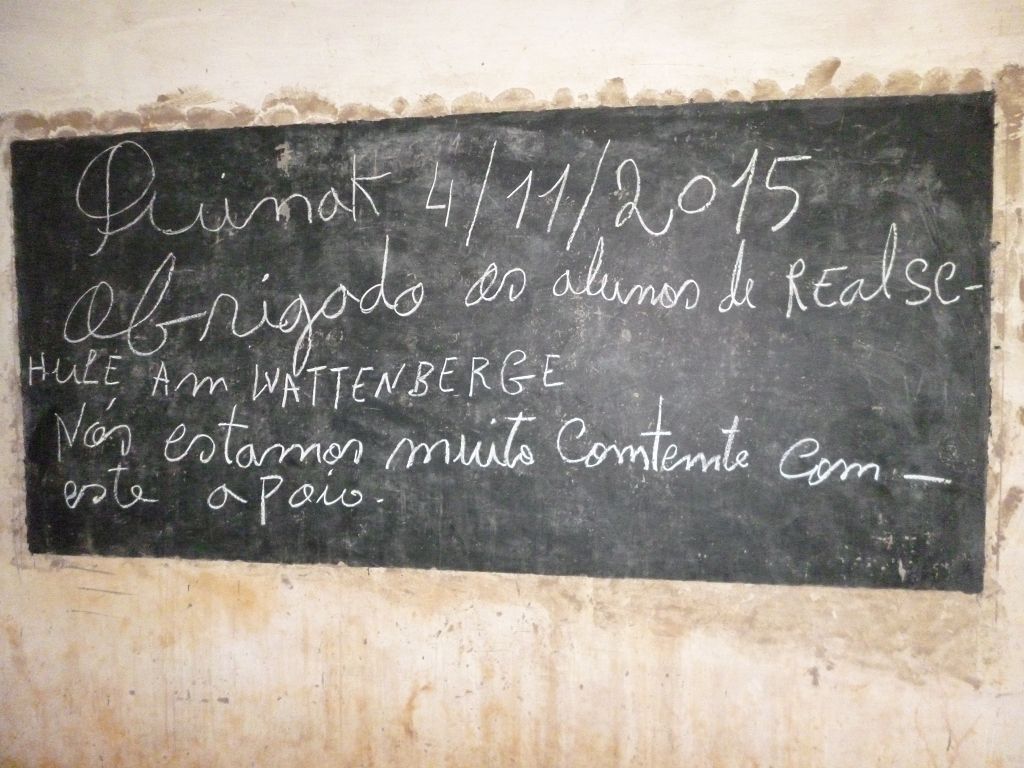 Quinak 4/11/2015
Obrigado os alunos de REalSC-
HULE Am WATTENBERGE
Nós estamos muito Comtemte Com -
este apoio.